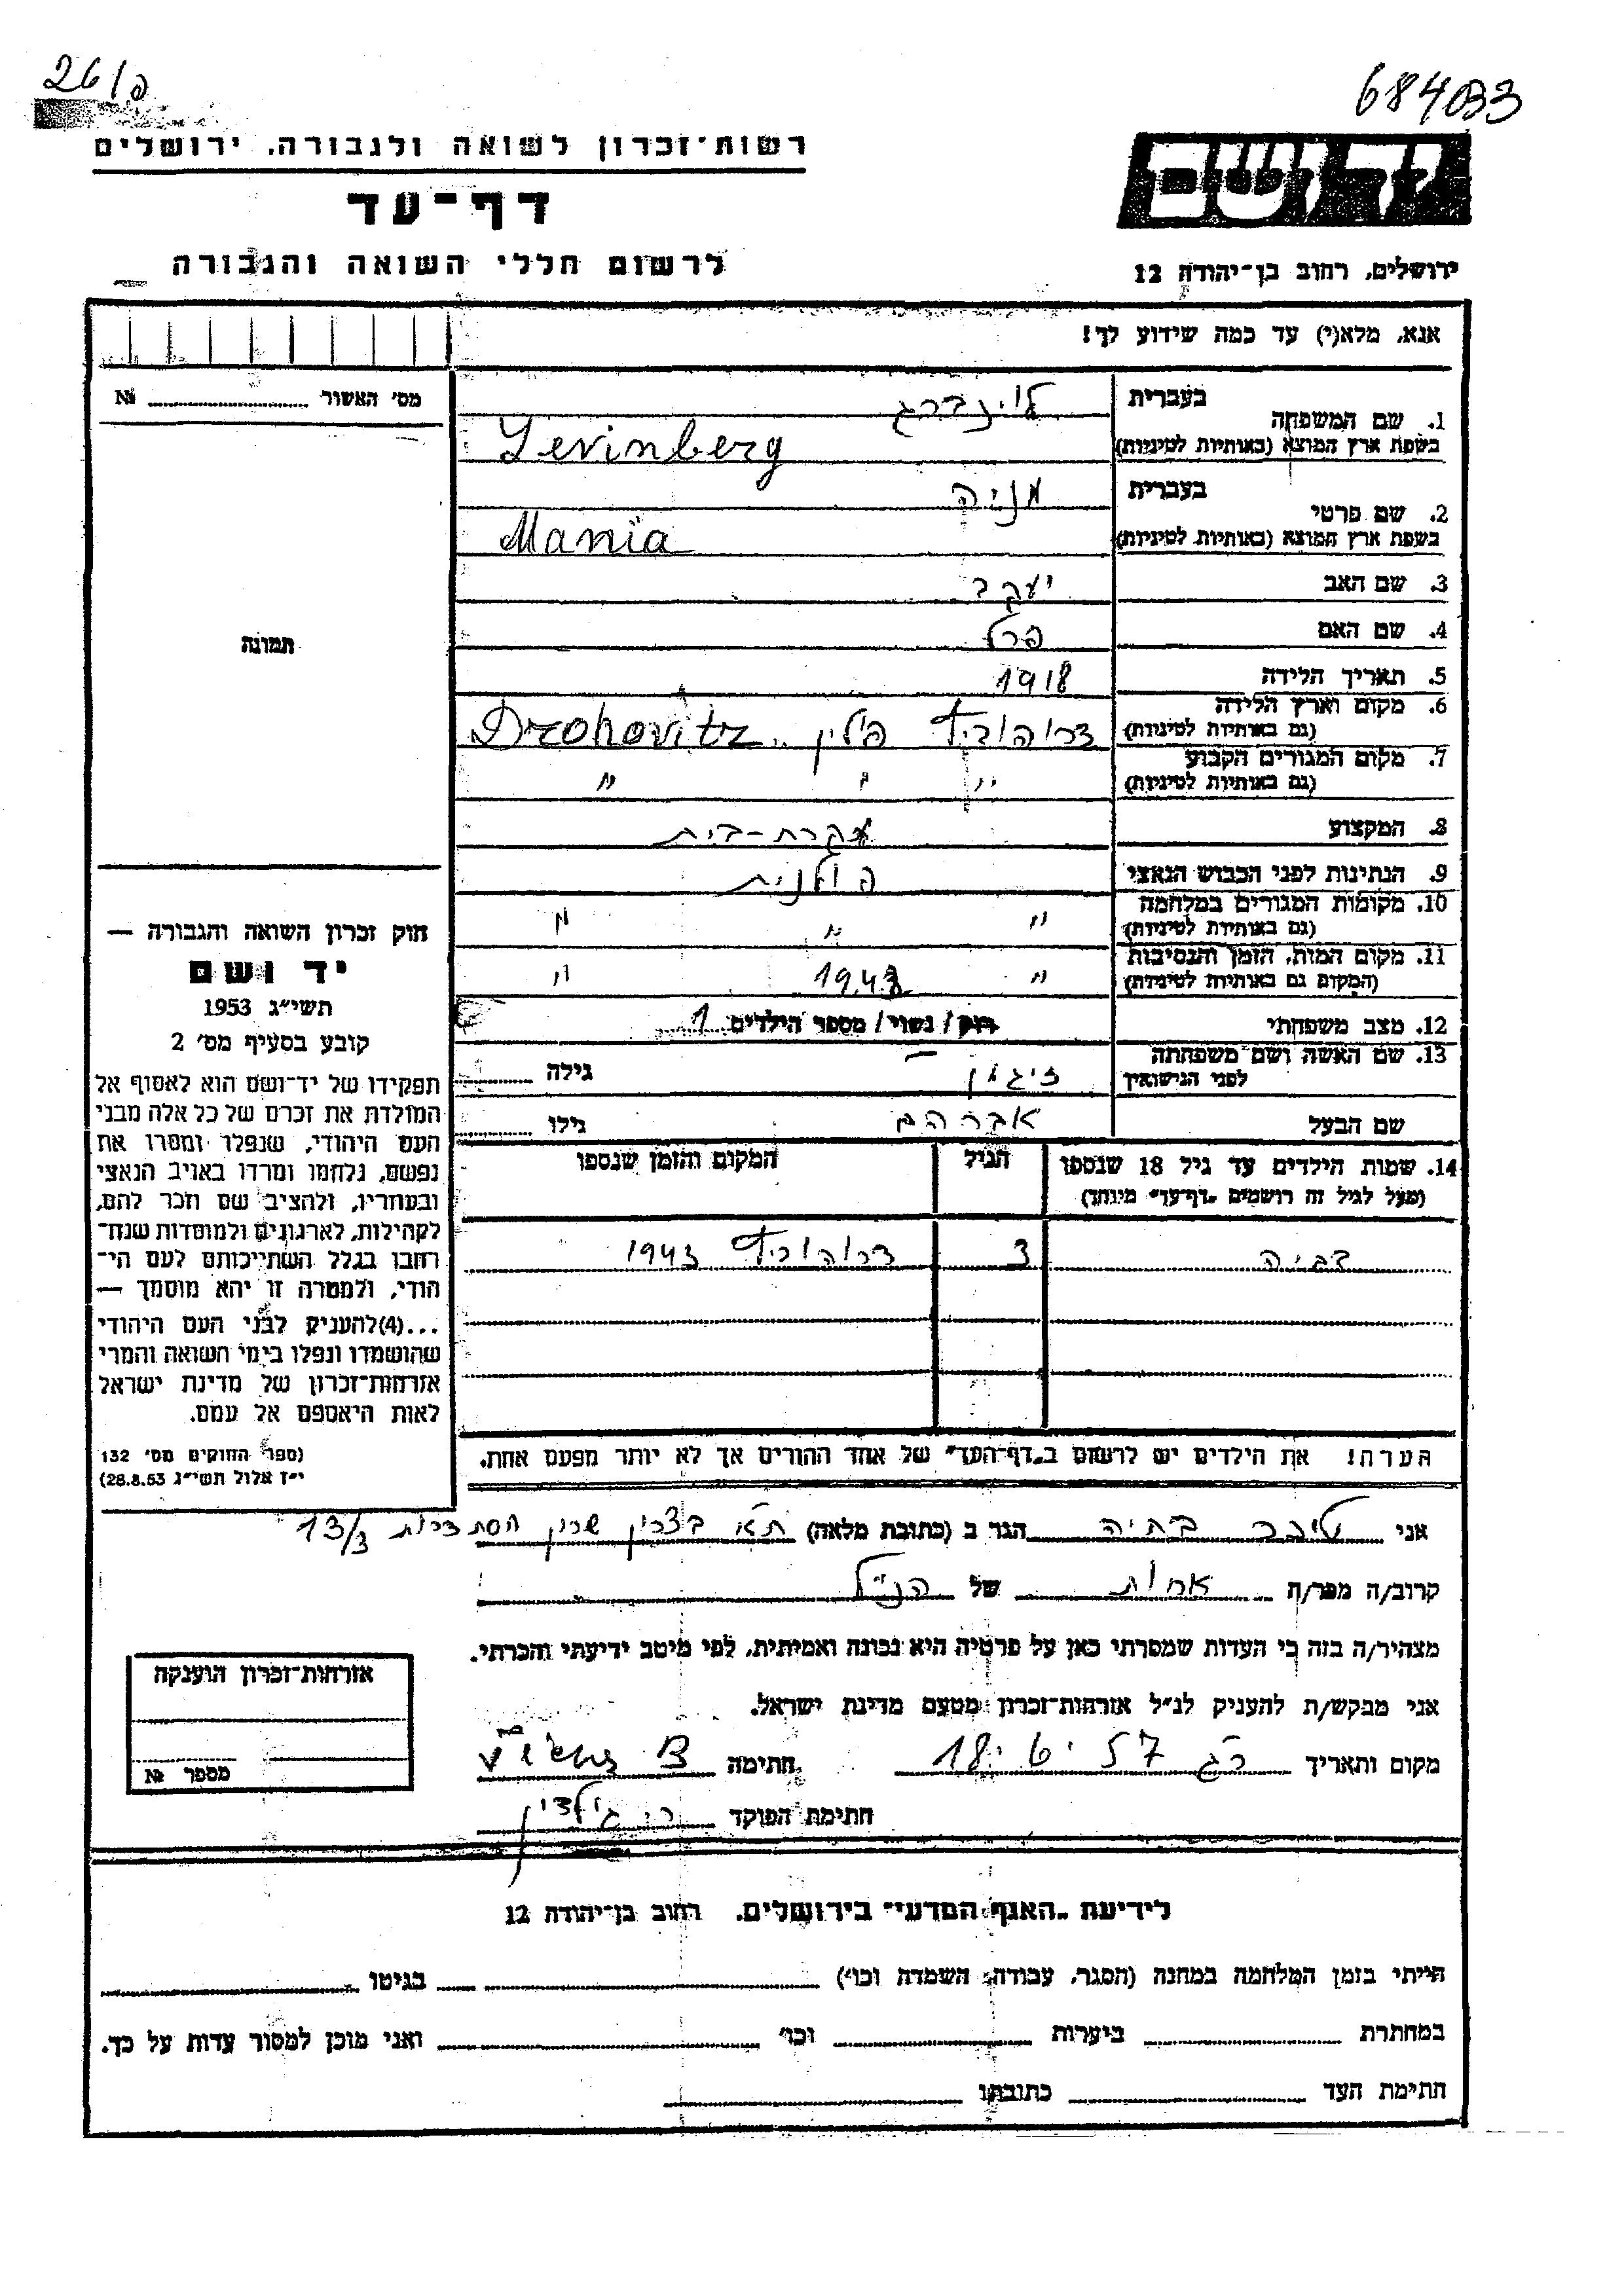 26/פ
684033
יד ושם
רשות־זכרון לשואה ולגבורה, ירושלים
דף־עד
לרשום חללי השואה והגבורה
ירושלים, רחוב בן־יהודה 12
אנא, מלא(י) עד כמה שידוע לך!
מס' האשור № 
1. שם המשפחה
בעברית
לוינברג
בשפת ארץ המוצא (באותיות לטיניות)
Levinberg
2. שם פרטי
בעברית
מניה
בשפת ארץ המוצא (באותיות לטיניות)
Mania
3. שם האב יעקב
4. שם האם פרל
תמונה
5. תאריך הלידה 1918
6. מקום וארץ הלידה
(גם באותיות לטיניות) דרוהוביץ פולין Drohovitz
7. מקום המגורים הקבוע
(גם באותיות לטיניות) " " "
8. המקצוע עקרת-בית
9. הנתינות לפני הכבוש הנאצי פולנית
10. מקומות המגורים במלחמה
(גם באותיות לטיניות) " " "
11. מקום המות, הזמן והנסיבות
(המקום גם באותיות לטיניות) " 1943 "
12. מצב משפחתי רווק/ נשוי/ מספר הילדים 1
13. שם האשה ושם משפחתה
לפני הנישואין גילה
שם הבעל אברהם גילו
14. שמות הילדים עד גיל 18 שנספו הגיל המקום והזמן שנספו
(מעל לגיל זה רושמים „דף־עד" מיוחד)
3 דרוהוביץ 1943
הערה! את הילדים יש לרשום ב„דף־העד" של אחד ההורים אך לא יותר מפעם אחת.
חוק זכרון השואה והגבורה —
יד ושם
תשי"ג 1953
קובע בסעיף מס' 2
תפקידו של יד־ושם הוא לאסוף אל
המולדת את זכרם של כל אלה מבני
העם היהודי, שנפלו ומסרו את
נפשם, נלחמו ומרדו באויב הנאצי
ובעוזריו, ולהציב שם וזכר להם,
לקהילות, לארגונים ולמוסדות שנח־
רבו בגלל השתייכותם לעם הי־
הודי, ולמטרה זו יהא מוסמך —
...(4)להעניק לבני העם היהודי
שהושמדו ונפלו בימי השואה והמרי
אזרחות־זכרון של מדינת ישראל
לאות היאספם אל עמם.
(ספר החוקים מס' 132
י"ז אלול תשי"ג 28.8.53)
אני בתיה הגר ב (כתובת מלאה) ת"א בצרון שכון הסתדרות 13/3
קרוב/ה מפר/ה אחות של הנ"ל
מצהיר/ה בזה כי העדות שמסרתי כאן על פרטיה היא נכונה ואמיתית, לפי מיטב ידיעתי והכרתי.
אני מבקש/ת להעניק לנ"ל אזרחות־זכרון מטעם מדינת ישראל.
מקום ותאריך חתימה
חתימת הפוקד
אזרחות־זכרון הוענקה
מספר №
לידיעת „האגף המדעי" בירושלים, רחוב בן־יהודה 12
הייתי בזמן המלחמה במחנה (הסגר, עבודה, השמדה וכו') בגיטו
במחתרת ביערות וכו' ואני מוכן למסור עדות על כך.
חתימת העד כתובתו